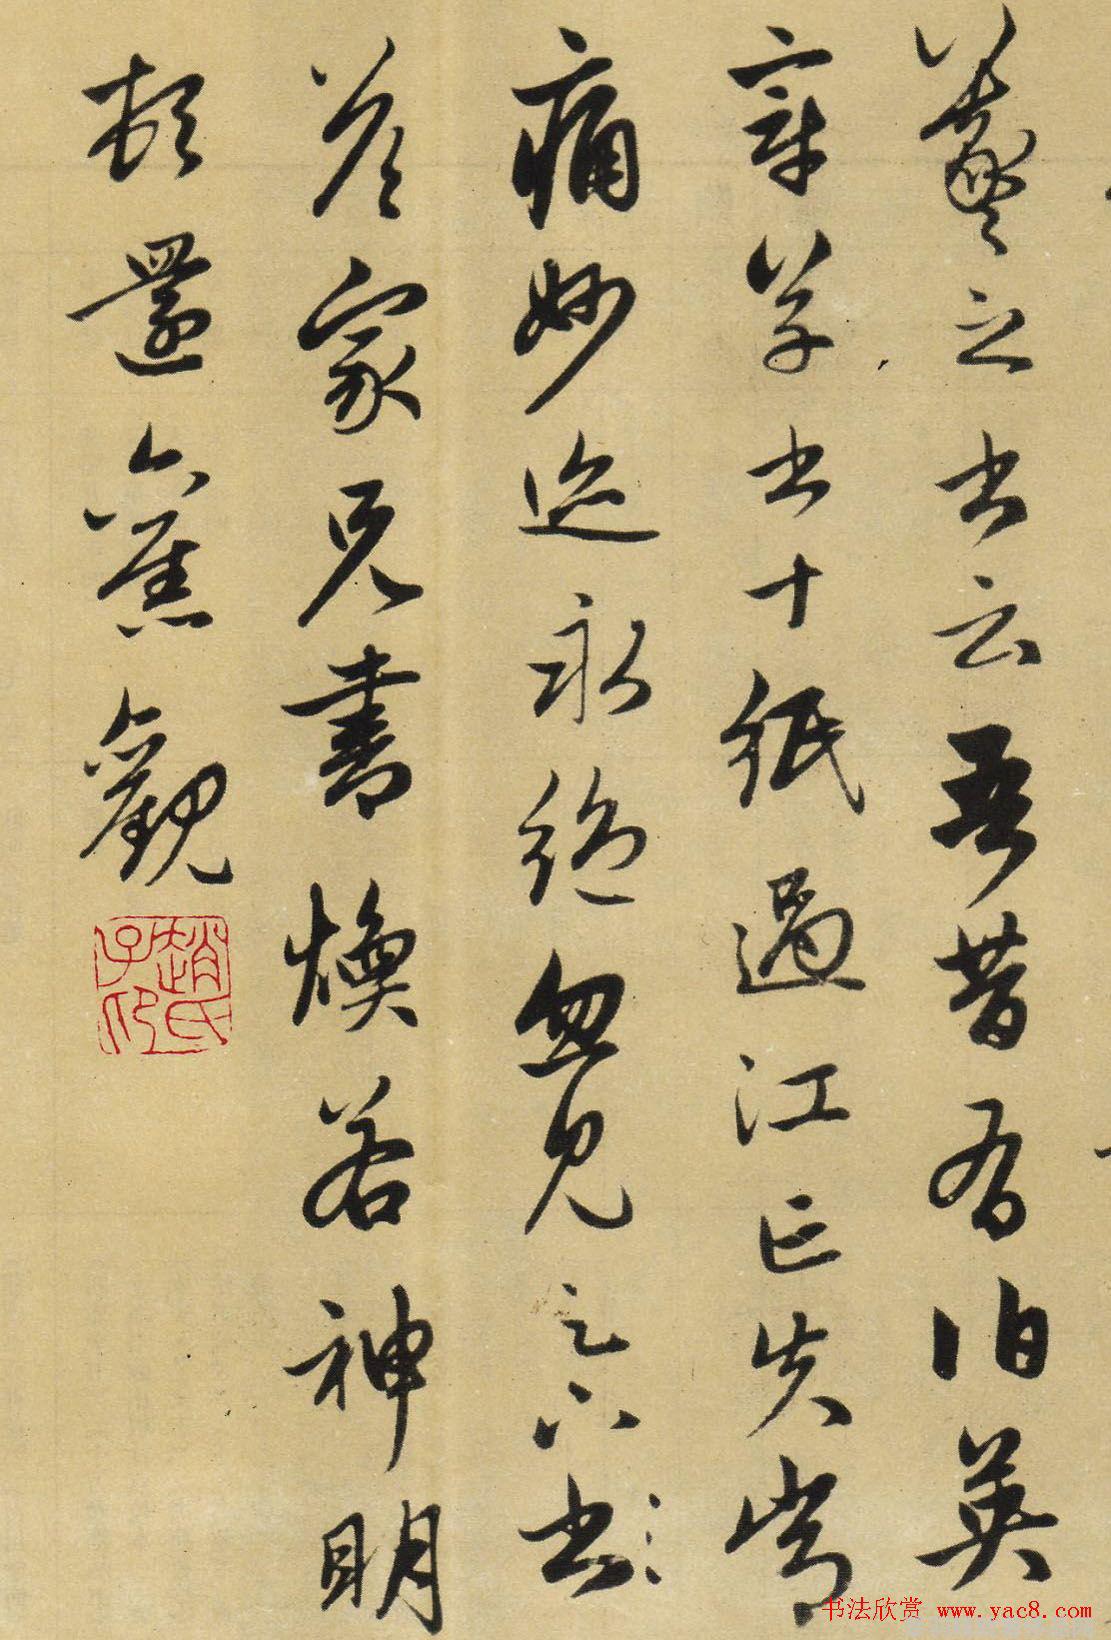 羲之書云吾昔有伯英
章草書十紙過江亡失常
痛妙迹永絶忽見足下書
答家兄書煥若神明
頓還舊觀
趙氏子昂
书法欣赏 www.yac8.com